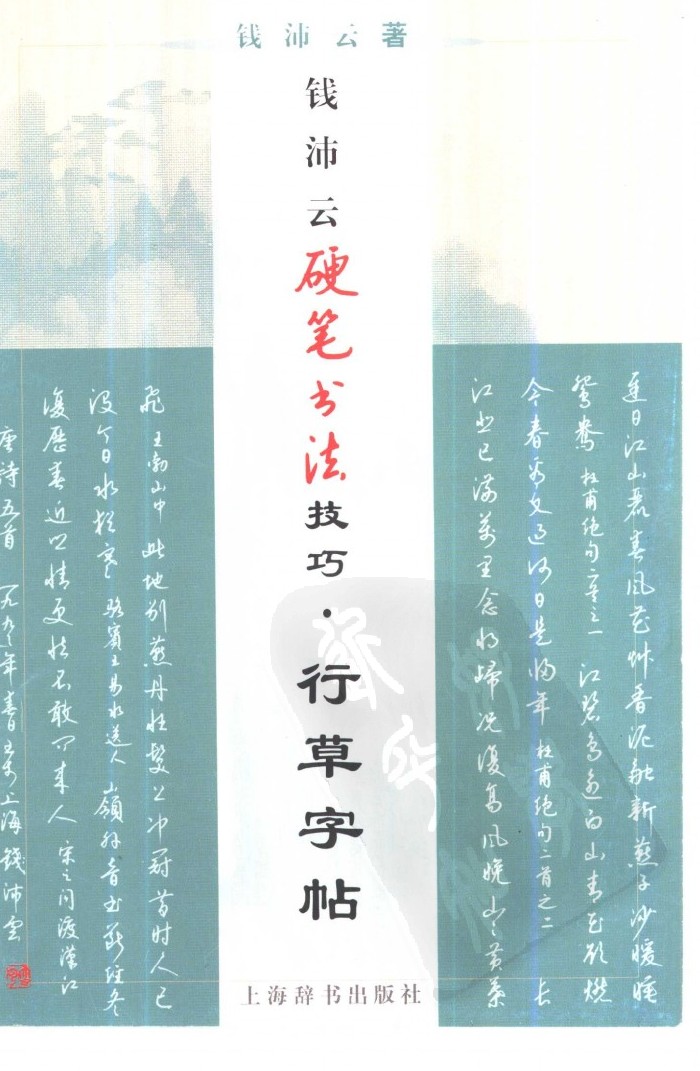 钱沛云著
钱沛云硬笔书法技巧·行草字帖
迟日江山丽春风花草香泥融新燕子沙暖睡
鸳鸯 杜甫绝句二首之一 江碧鸟逾白山青花欲燃
今春看又过何日是归年 杜甫绝句二首之二 长
江悲已滞万里念将归况复高风晚山山黄叶
飞 王勃山中 此地别燕丹壮发上冲冠昔时人已
没今日水犹寒 骆宾王易水送人 岭外音书断经冬
復歷春近乡情更怯不敢问来人 宋之问渡漢江
唐诗五首 一九九 年春日 上海钱沛雲
上海辞书出版社